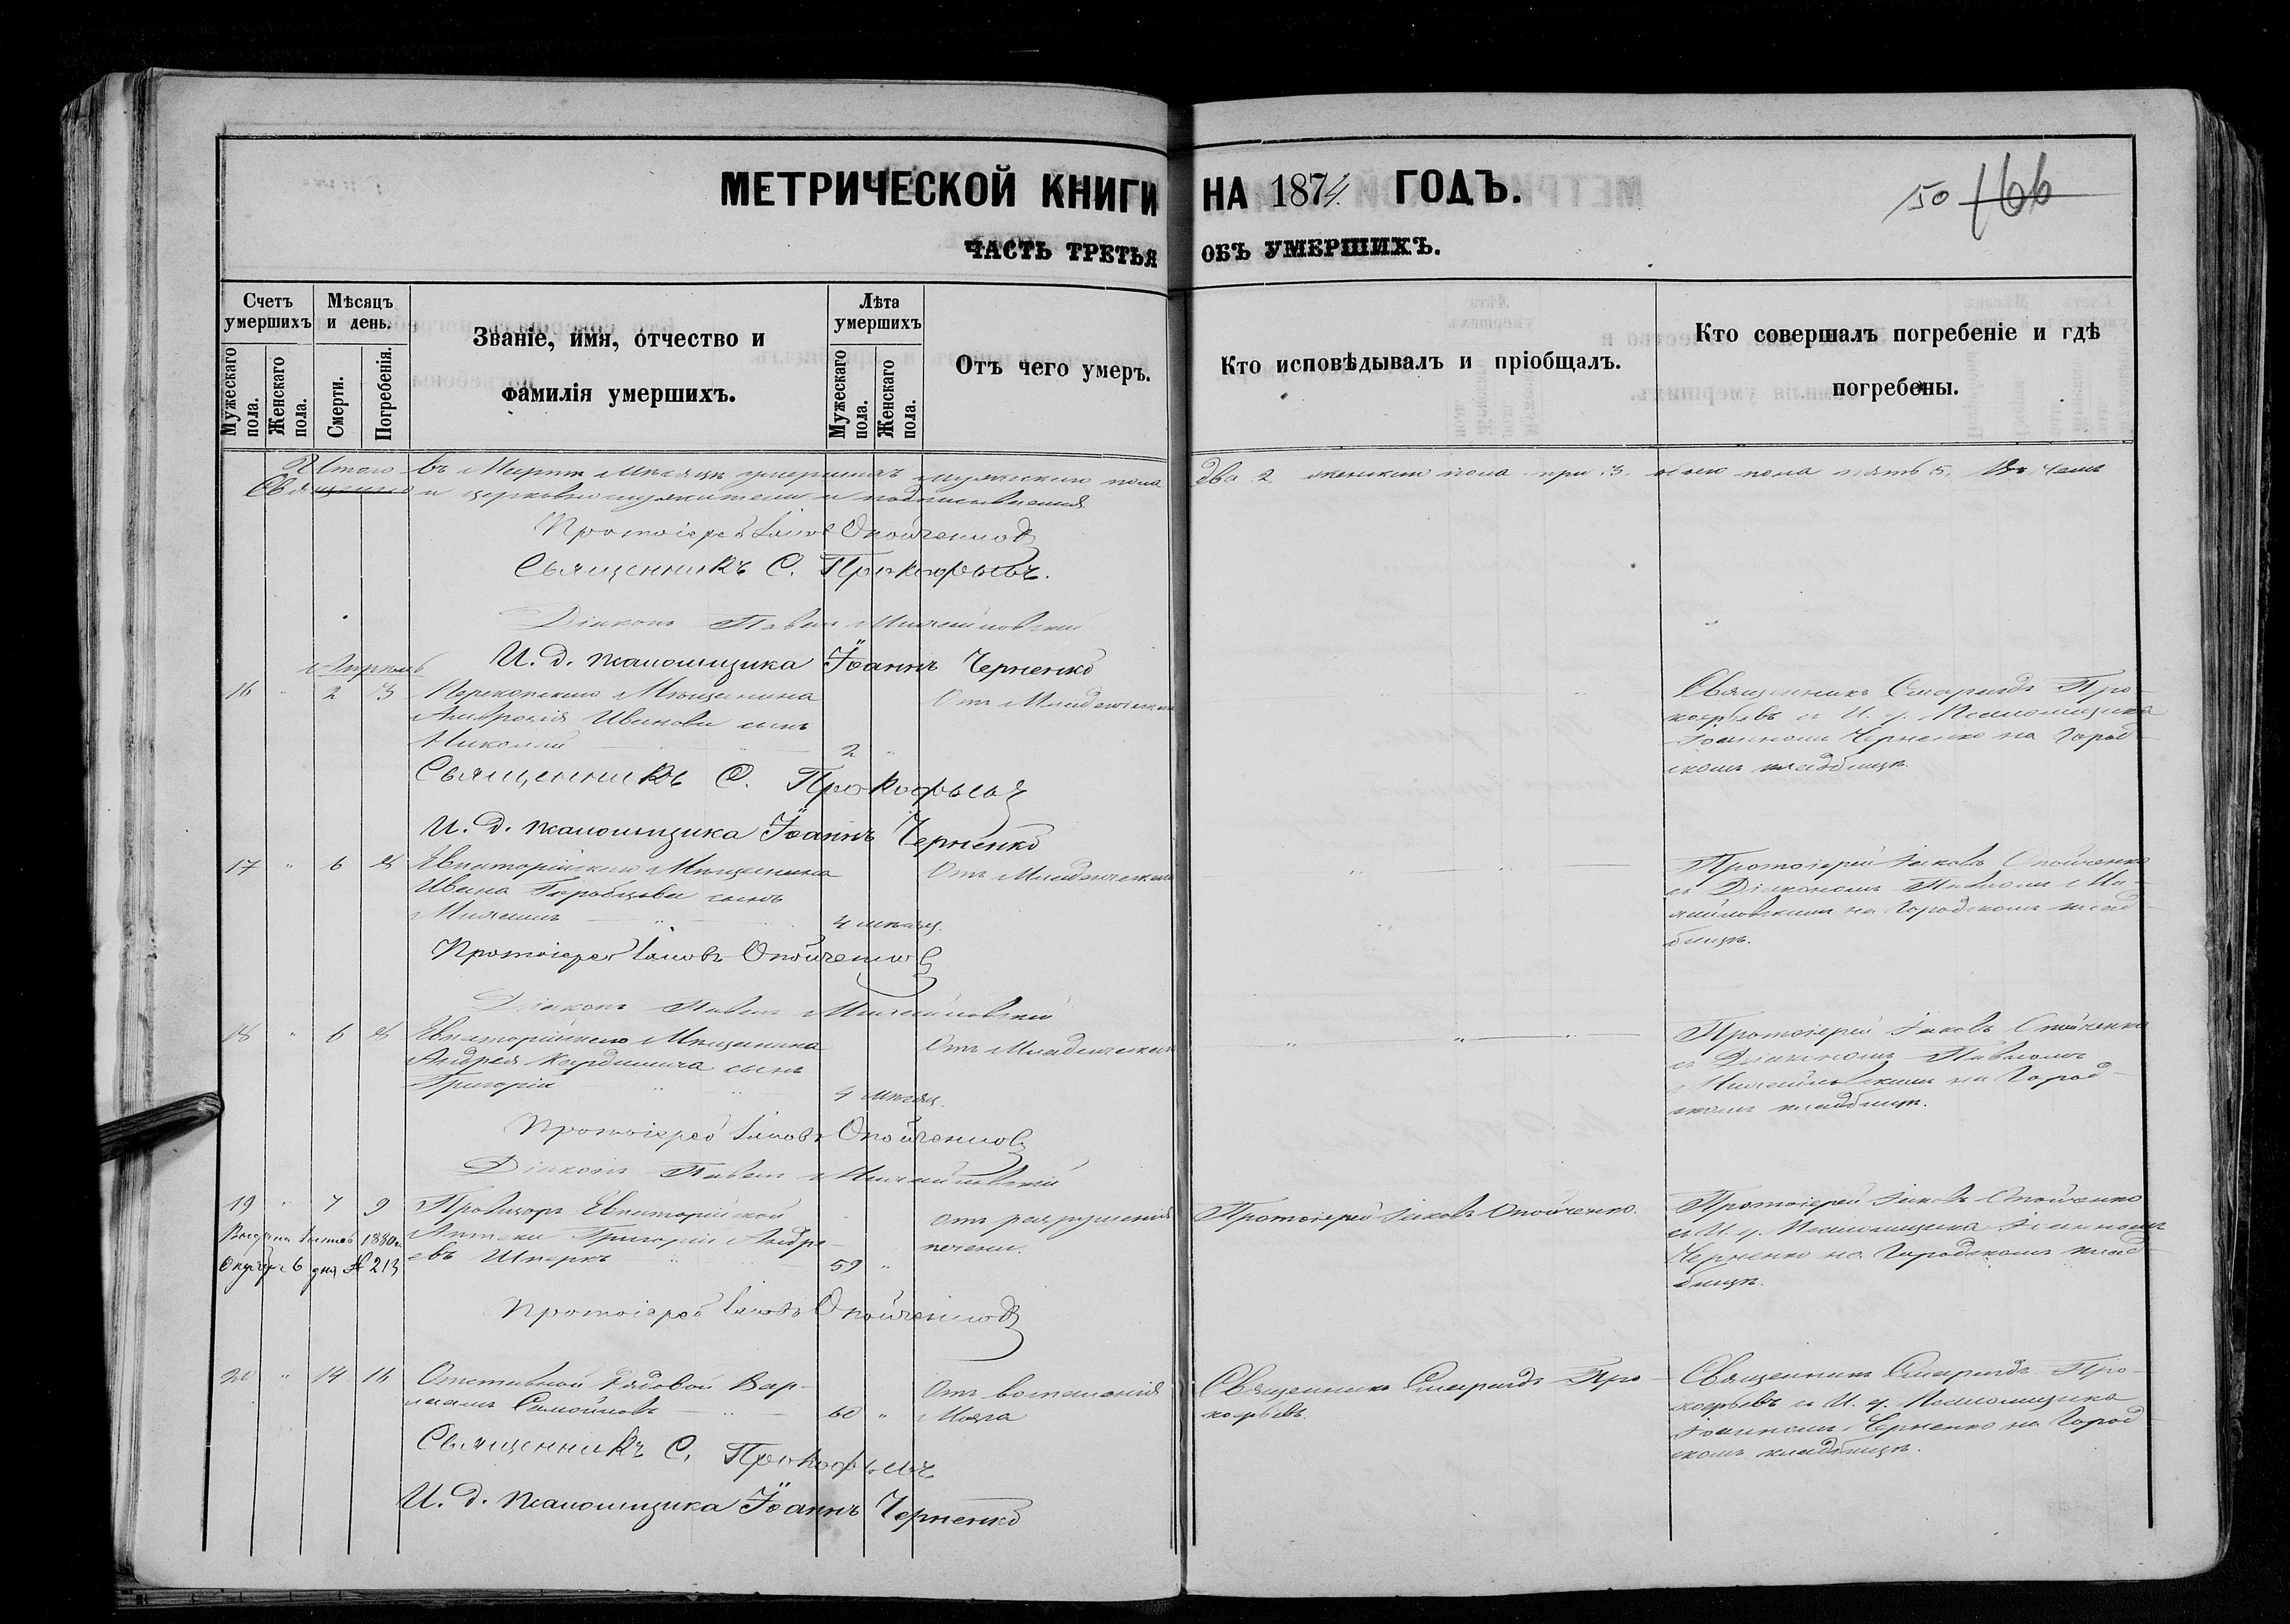 МЕТРИЧЕСКОЙ КНИГИ НА 1874 ГОДЪ.
150 166
ЧАСТЬ ТРЕТЬЯ ОБЪ УМЕРШИХЪ.
Счетъ умершихъ
Мужескаго пола.
Женскаго пола.
Мѣсяцъ и день.
Смерти.
Погребенія.
Званіе, имя, отчество и
фамилія умершихъ.
Лѣта умершихъ
Мужескаго пола.
Женскаго пола.
Отъ чего умеръ.
Кто исповѣдывалъ и пріобщалъ.
Кто совершалъ погребеніе и гдѣ
погребены.
Итого въ Мартѣ Мѣсяцѣ умершихъ мужескаго пола два 2 женскаго пола три 3. обоего пола пять 5. Въ чемъ
Священно и церковнослужители и подписываемся
Протоіерей Іаковъ Опойченко
Священникъ С. Прокофьевъ.
Діаконъ Павелъ Михайловскій
И. д. псаломщика Іоаннъ Черненко
Апрѣль
16 " 2 3
Перекопскаго Мѣщанина
Амвросія Иванова сынъ
Николай
2 "
Отъ Младенческой
Священникъ Про-
кофьевъ съ И. д. Псаломщика
Іоанномъ Черненко на Город-
скомъ кладбищѣ.
Священникъ С. Прокофьевъ
И. д. псаломщика Іоаннъ Черненко
17 " 6 8
Евпаторійскаго Мѣщанина
Ивана сынъ
Михаилъ
4 мѣсяц.
Отъ Младенческой
Протоіерей Іаковъ Опойченко
съ Діакономъ Павломъ Ми-
хайловскимъ на Городскомъ клад-
бищѣ.
Протоіерей Іаковъ Опойченко
Діаконъ Павелъ Михайловскій
18 " 6 8
Евпаторійскаго Мѣщанина
Андрея сынъ
Григорій
4 мѣсяц.
Отъ Младенческой
Протоіерей Іаковъ Опойченко
съ Діакономъ Павломъ
Михайловскимъ на Город-
скомъ кладбищѣ.
Протоіерей Іаковъ Опойченко
Діаконъ Павелъ Михайловскій
19 " 7 9
Провизоръ Евпаторійской
Аптеки Григорій Андре-
евъ
59 "
Отъ разрушенія
печени.
Протоіерей Іаковъ Опойченко.
Протоіерей Іаковъ Опойченко
съ И. д. Псаломщика Іоанномъ
Черненко на Городскомъ клад-
бищѣ.
1880 г.
6 дня № 213
Протоіерей Іаковъ Опойченко
20 " 14 16
Отставной Рядовой Вар-
лаамъ Самойловъ
60 "
Отъ воспаленія
Мозга
Священникъ Про-
кофьевъ.
Священникъ Про-
кофьевъ съ И. д. Псаломщика
Іоанномъ Черненко на Город-
скомъ кладбищѣ.
Священникъ С. Прокофьевъ
И. д. псаломщика Іоаннъ Черненко